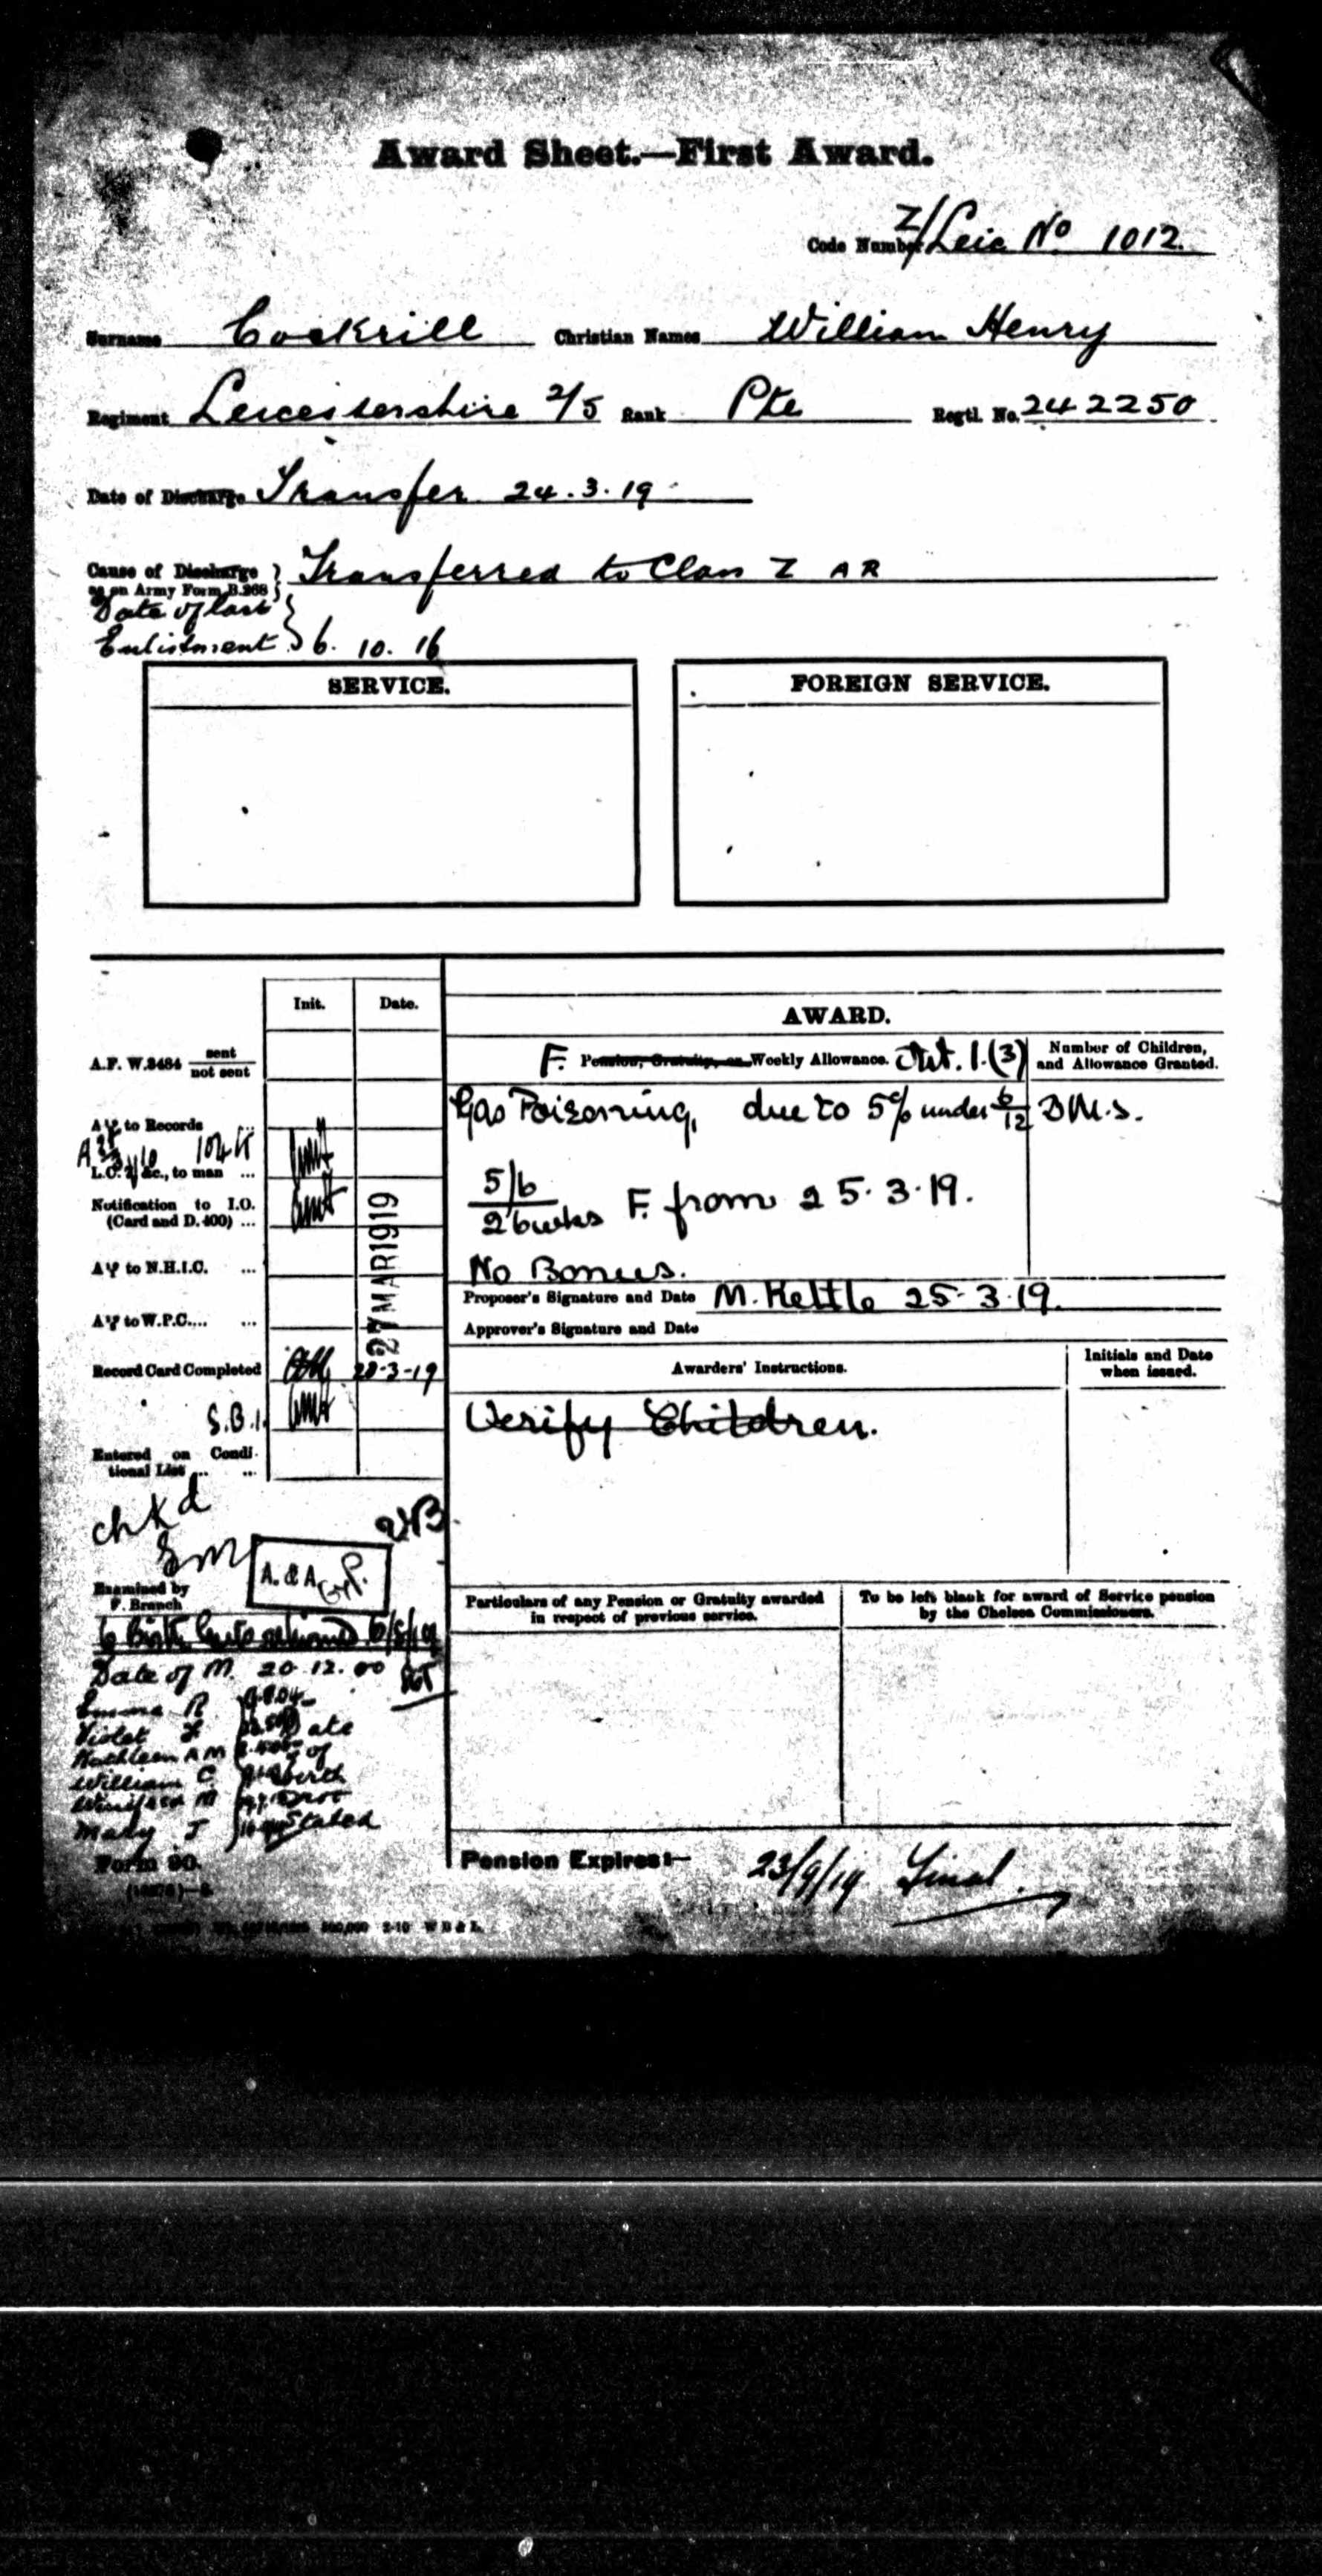 Award Sheet.—First Award.
Code Number Z/Leic No 1012.
Surname Cockrill Christian Names William Henry
Regiment Leicestershire 2/5 Rank Pte Regtl. No. 242250
Date of Discharge Transfer 24.3.19
Cause of Discharge as on Army Form B.268 } Transferred to Class Z AR
Date of last Enlistment } 6. 10. 16
SERVICE.
FOREIGN SERVICE.
Init. Date.
AWARD.
F. Pension, Gratuity, or Weekly Allowance. Art. 1.(3)
Number of Children, and Allowance Granted.
A.F. W.3484 sent / not sent
Gas Poisoning, due to 5% under 6/12 DMS.
A Y to Records ...
L.C. &c., to man ...
Notification to I.O. (Card and D. 400) ...
5/6
26 weeks F. from 25.3.19.
27 MAR 1919
A Y to N.H.I.C. ...
No Bonus.
Proposer's Signature and Date M. Kettle 25.3.19.
A Y to W.P.C.... ...
Approver's Signature and Date
Record Card Completed 28-3-19
Awarders' Instructions.
Initials and Date when issued.
S.B.1.
Verify Children.
Entered on Conditional List ... ...
chkd
A. & A.
Examined by F. Branch
Particulars of any Pension or Gratuity awarded in respect of previous service.
To be left blank for award of Service pension by the Chelsea Commissioners.
6 Birth Certs returned
Date of M. 20.12.00
Emma R
Violet
Kathleen A M
William C.
Winifred M
Mary J
Date of birth not stated
Form 90.
Pension Expires:— 23/9/19 Final.